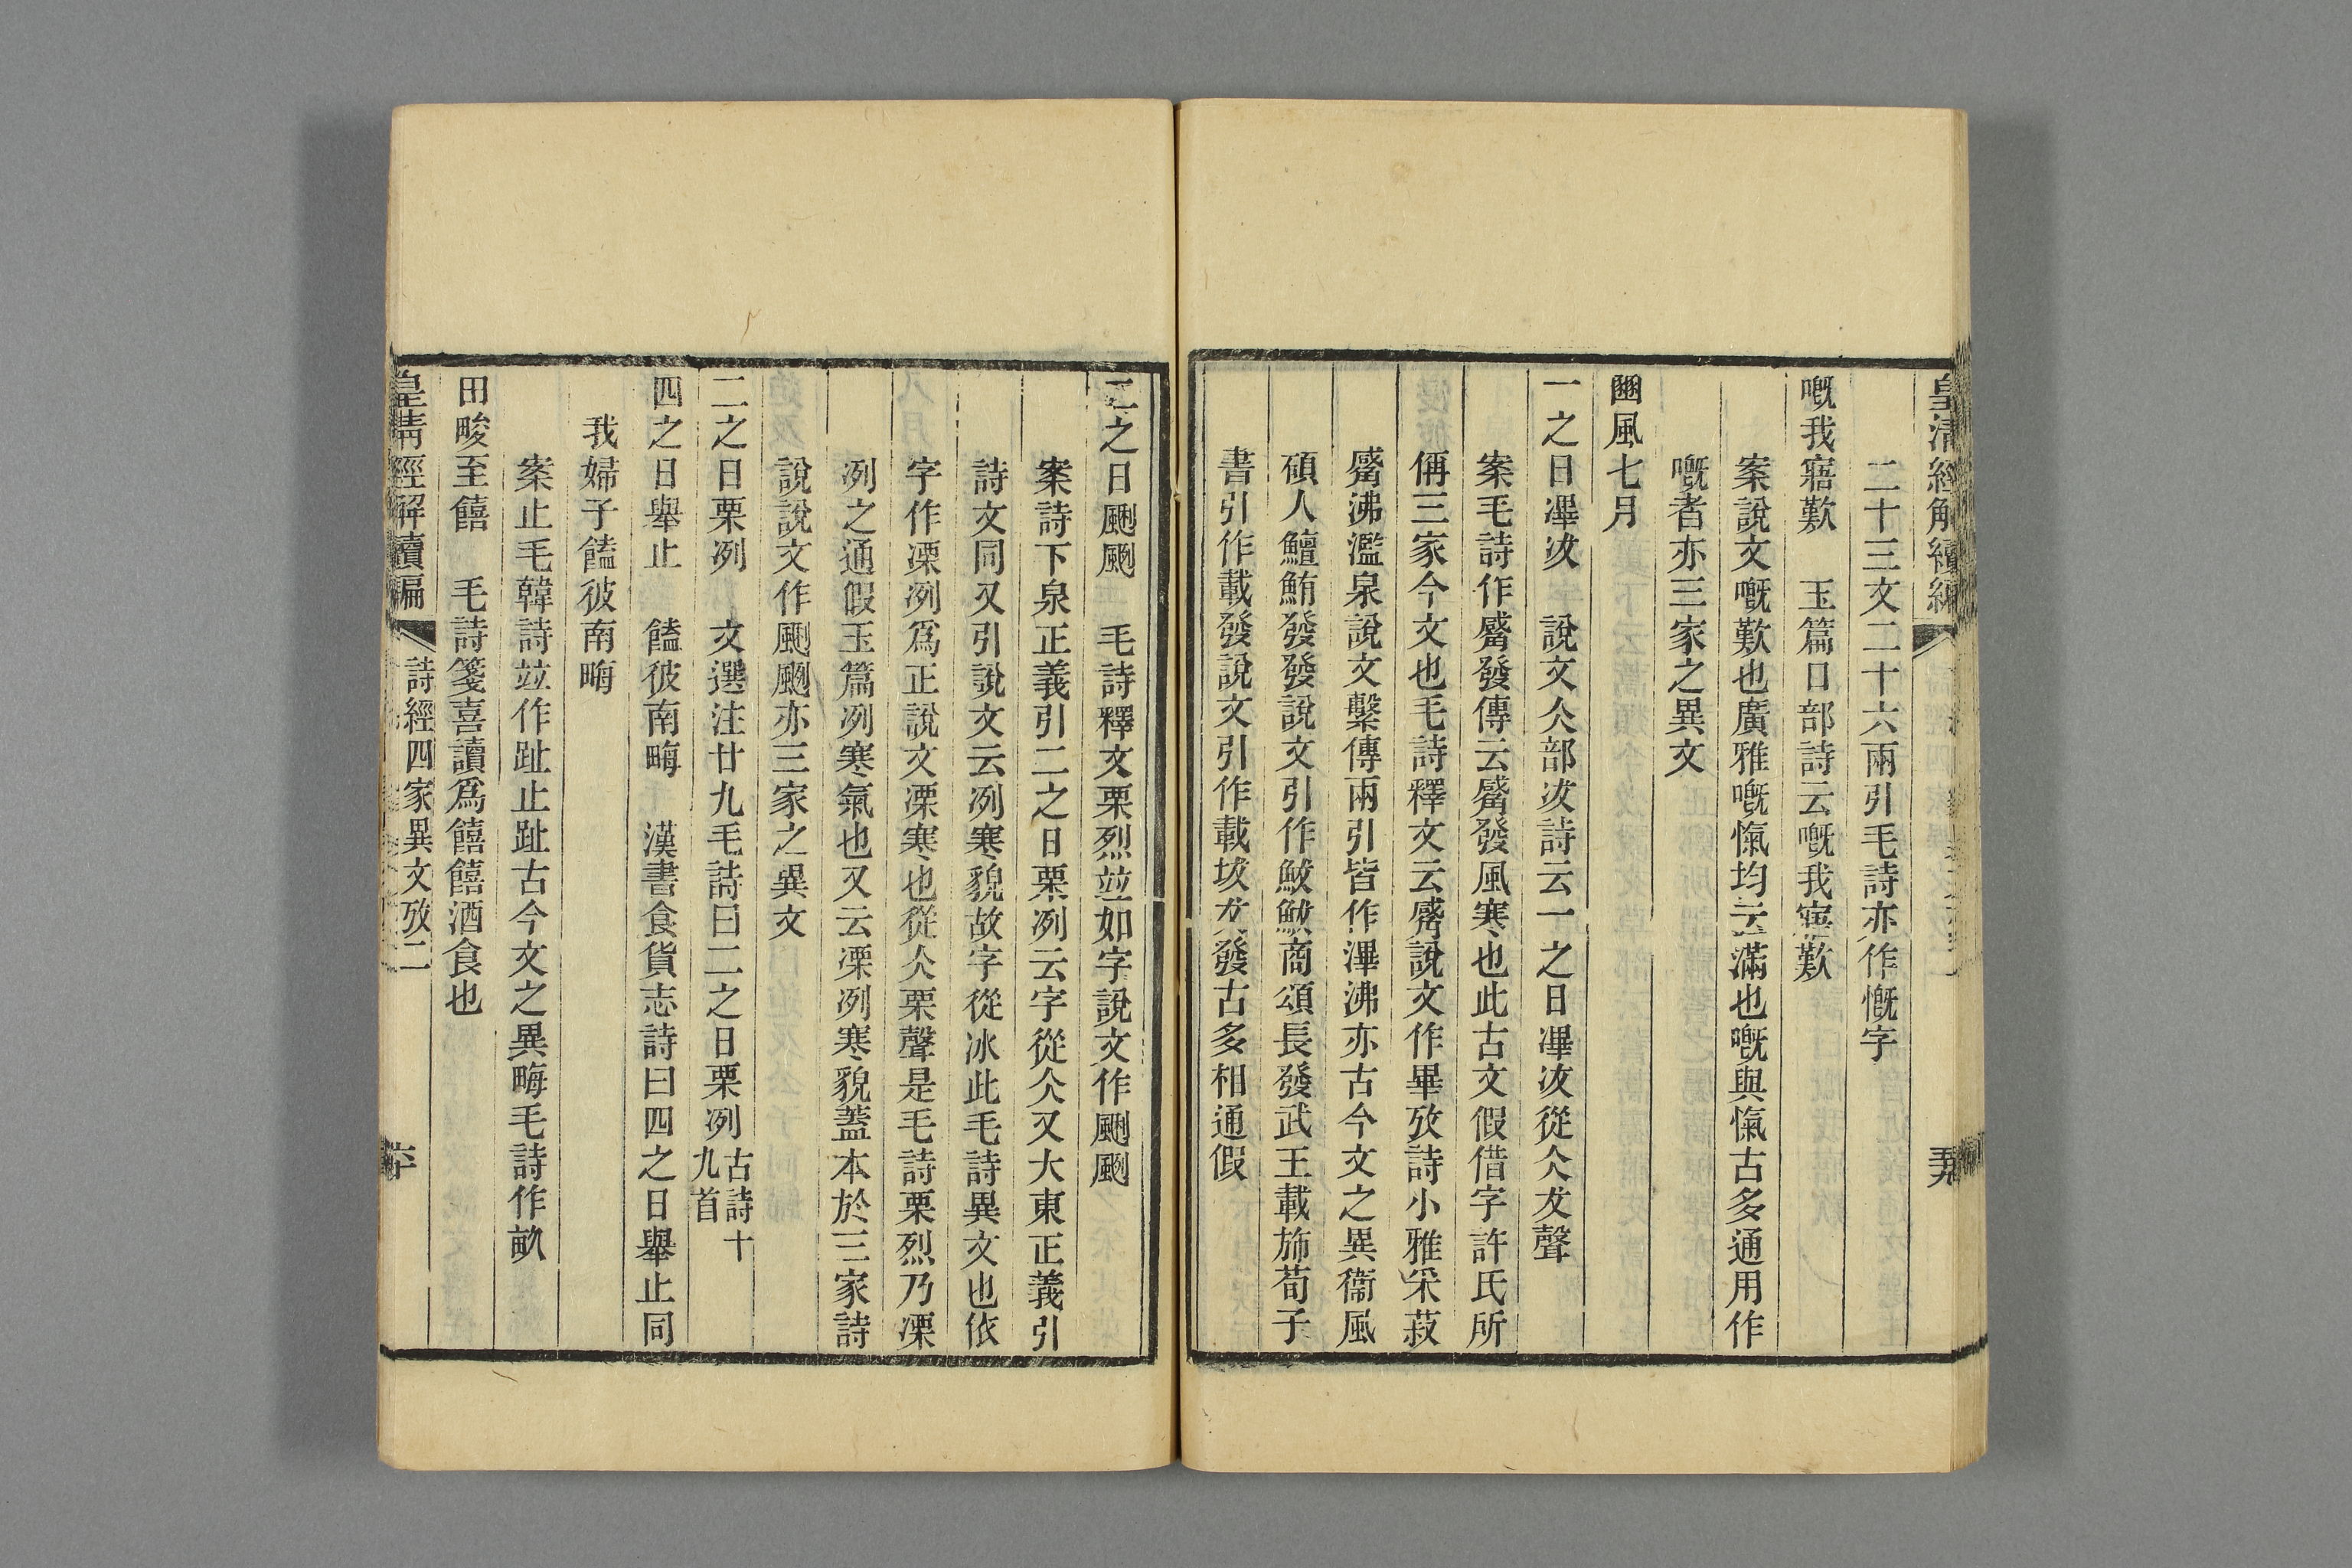 皇清經解續編
五九
二十三文二十六兩引毛詩亦作慨字
嘅我寤歎　玉篇口部詩云嘅我寤歎
案說文嘅歎也廣雅嘅愾均云滿也嘅與愾古多通用作
嘅者亦三家之異文
豳風七月
一之日滭冹　說文仌部冹詩云一之日滭冹從仌犮聲
案毛詩作觱發傳云觱發風寒也此古文假借字許氏所
偁三家今文也毛詩釋文云觱說文作畢攷詩小雅采菽
觱沸濫泉說文繫傳兩引皆作滭沸亦古今文之異衞風
碩人鱣鮪發發說文引作鮁鮁商頌長發武王載斾荀子
書引作載發說文引作載坺犮發古多相通假
二之日颲颲　毛詩釋文栗烈竝如字說文作颲颲
案詩下泉正義引二之日栗冽云字從仌又大東正義引
詩文同又引說文云冽寒貌故字從冰此毛詩異文也依
字作凓冽爲正說文凓寒也從仌栗聲是毛詩栗烈乃凓
冽之通假玉篇冽寒氣也又云凓冽寒貌蓋本於三家詩
說說文作颲颲亦三家之異文
二之日栗冽　文選注廿九毛詩曰二之日栗冽古詩十九首
四之日舉止　饁彼南畮　漢書食貨志詩曰四之日舉止同
我婦子饁彼南畮
案止毛韓詩竝作趾止趾古今文之異畮毛詩作畝
田畯至饎　毛詩箋喜讀爲饎饎酒食也
皇清經解續編
詩經四家異文攷二
六十